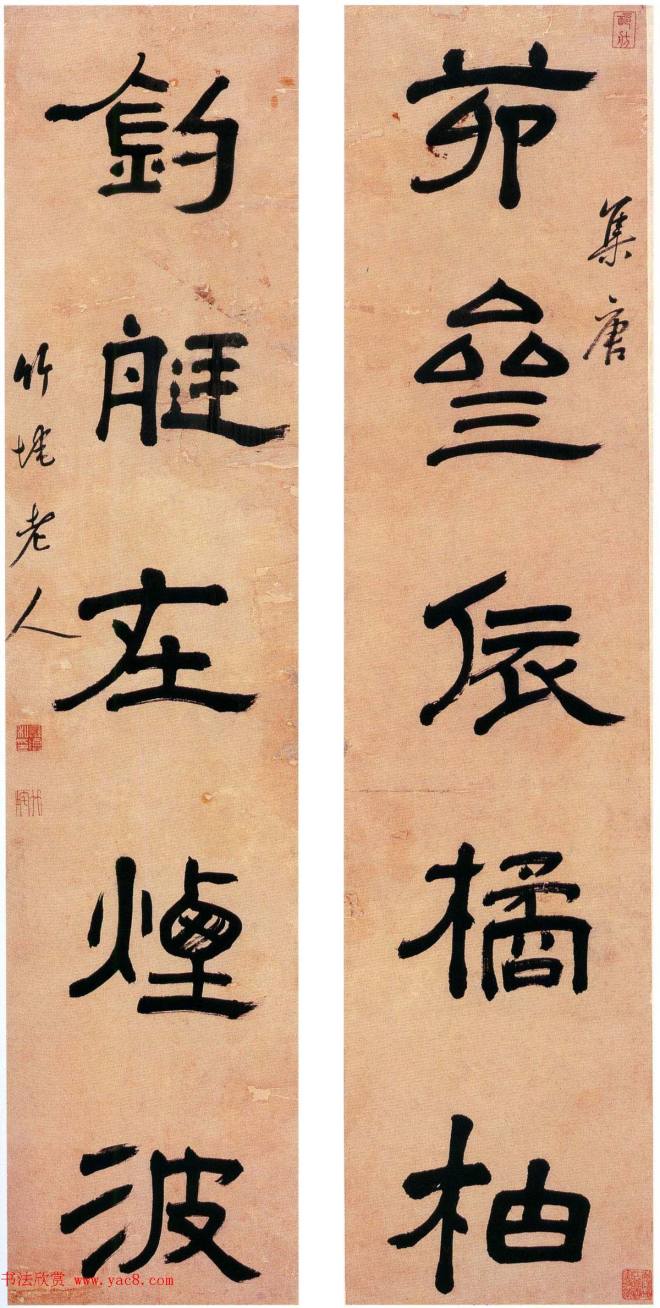 集唐
茆齋依橘柚
釣艇在煙波
竹垞老人
书法欣赏 www.yac8.com